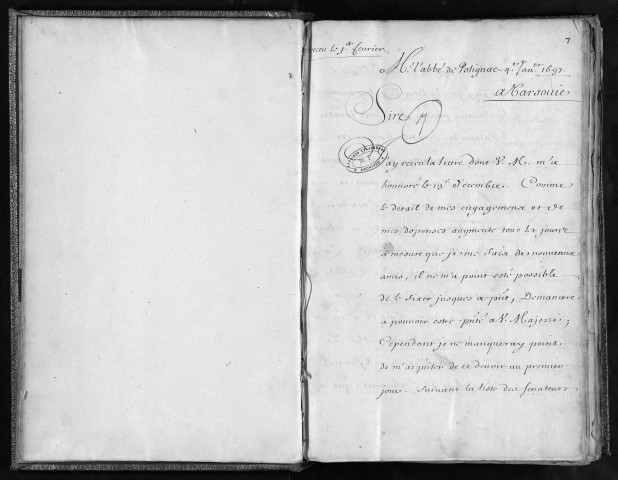 7
receu le 1er fevrier.
Mr. l'abbé de Polignac 4e Janer 1697.
a Varsovie
Sire
J'ay receu la lettre dont V. M. m'a
honnoré le 13e Decembre. Comme
le detail de mes engagemens et de
mes depenses augmente tous les jours
a mesure que je me fais de nouveaux
amis, il ne m'a point esté possible
de le fixer jusques a prnt, De maniere
a pouvoir estre prnté a V. Majesté;
Cependant je ne manqueray point
de m'aquiter de ce devoir au premier
jour. Suivant la liste des senateurs